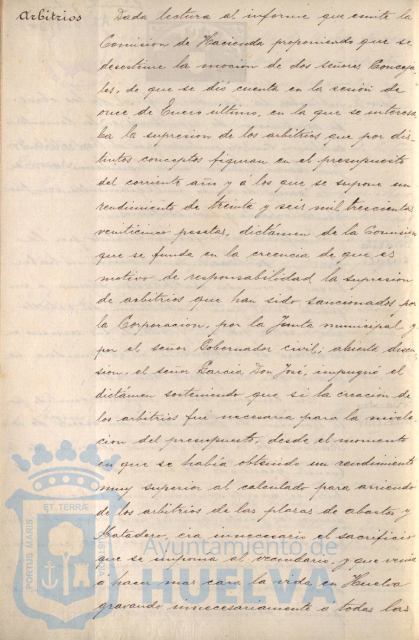 Arbitrios
Dada lectura al informe que emite la
Comision de Hacienda proponiendo que se
desestime la mocion de dos señores Conceja-
les, de que se dió cuenta en la sesión de
once de Enero último, en la que se interesa-
ba la supresion de los arbitrios que por dis-
tintos conceptos figuran en el presupuesto
del corriente año y á los que se supone un
rendimiento de treinta y seis mil trescientas
veinticinco pesetas, dictámen de la Comision
que se funda en la creencia de que es
motivo de responsabilidad la supresion
de arbitrios que han sido sancionados por
la Corporacion, por la Junta municipal, y
por el señor Gobernador civil; abierta discu-
sion, el señor Garcia Don José, impugnó el
dictámen sosteniendo que si la creacion de
los arbitrios fué necesaria para la nivela-
cion del presupuesto, desde el momento
en que se habia obtenido un rendimiento
muy superior al calculado para arriendo
de los arbitrios de las plazas de abastos y
Matadero, era innecesario el sacrificio
que se imponia al vecindario, y que venia
a hacer mas cara la vida en Huelva
gravando innecesariamente a todas las
PORTUS MARIS
ET TERRAE
Ayuntamiento de
HUELVA